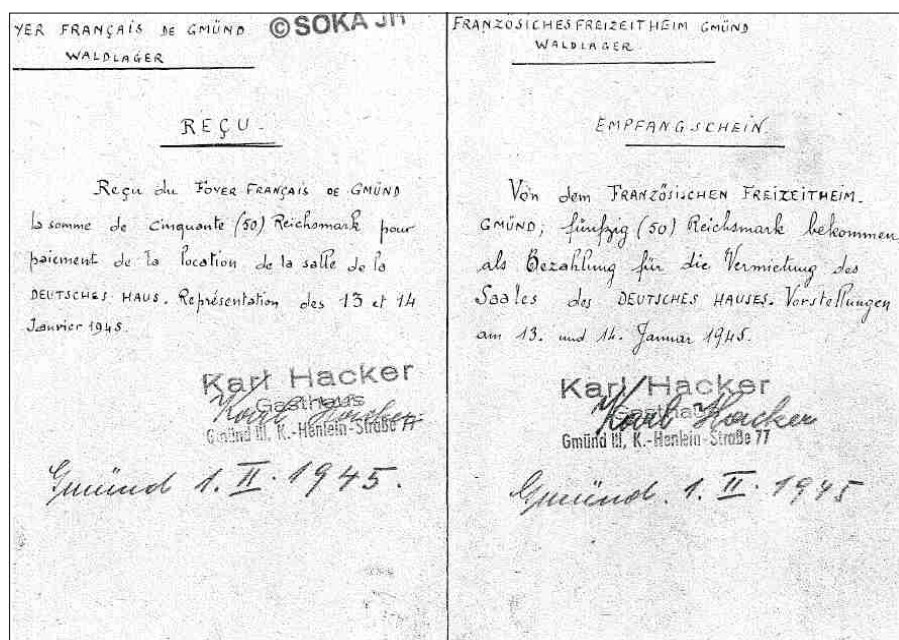 YER FRANÇAIS DE GMÜND
WALDLAGER
©SOKA JH
REÇU.
Reçu du FOYER FRANÇAIS DE GMÜND
la somme de cinquante (50) Reichsmark pour
paiement de la location de la salle de la
DEUTSCHES HAUS. Représentation des 13 et 14
Janvier 1945.
Karl Hacker
Gasthaus
Karl Hacker
Gmünd III, K.-Henlein-Straße 77
Gmünd 1. II. 1945.
FRANZÖSICHES FREIZEITHEIM GMÜND
WALDLAGER
EMPFANGSCHEIN.
Von dem FRANZÖSISCHEN FREIZEITHEIM.
GMÜND, fünfzig (50) Reichsmark bekommen,
als Bezahlung für die Vermietung des
Saales des DEUTSCHES HAUSES. Vorstellungen
am 13. und 14. Januar 1945.
Karl Hacker
Gasthaus
Karl Hacker
Gmünd III, K.-Henlein-Straße 77
Gmünd. 1. II. 1945